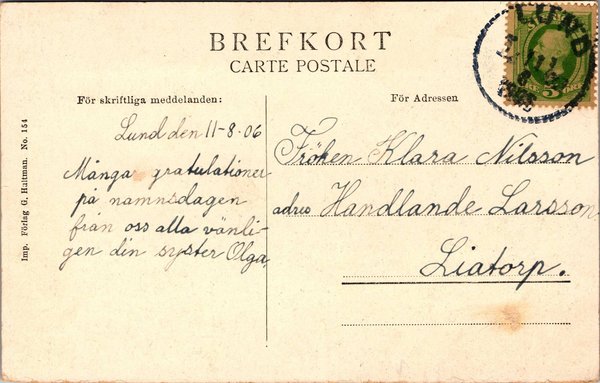 BREFKORT
CARTE POSTALE
För skriftliga meddelanden:
För Adressen
Lund den 11-8-06
Många gratulationer
på namnsdagen
från oss alla vänli-
gen din syster Olga.
Fröken Klara Nilsson
adres Handlande Larsson
Liatorp.
Imp. Förlag G. Haltman. No. 154
LUND